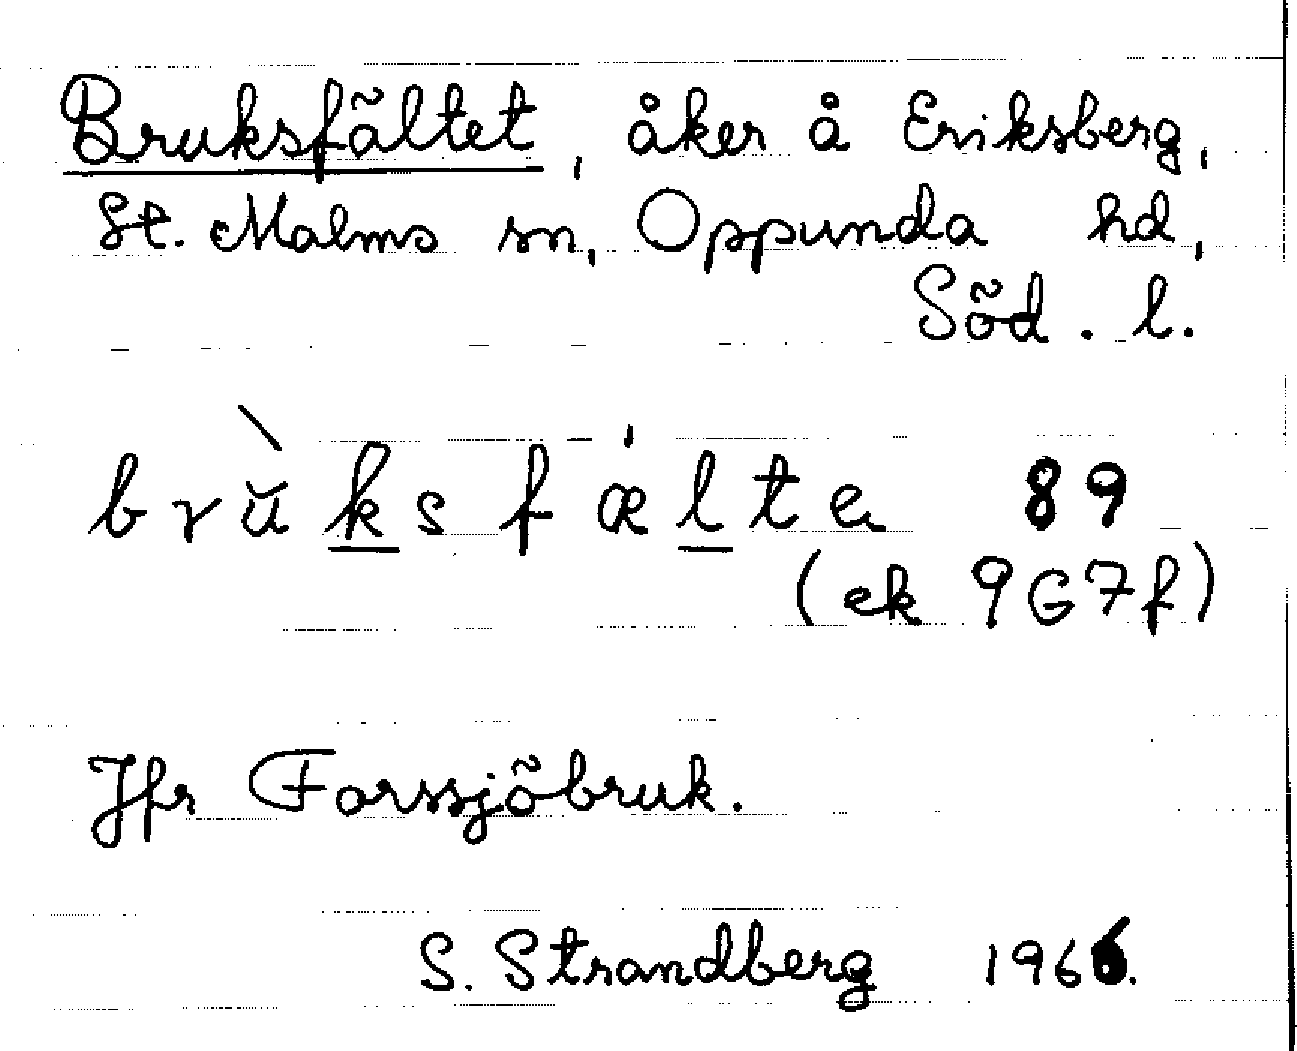 Bruksfältet, åker å Eriksberg,
St. Malms sn, Oppunda hd,
Söd. l.
brùksfæ̀lte 89
(ek 9G7f)
Jfr Forssjöbruk.
S. Strandberg 1966.